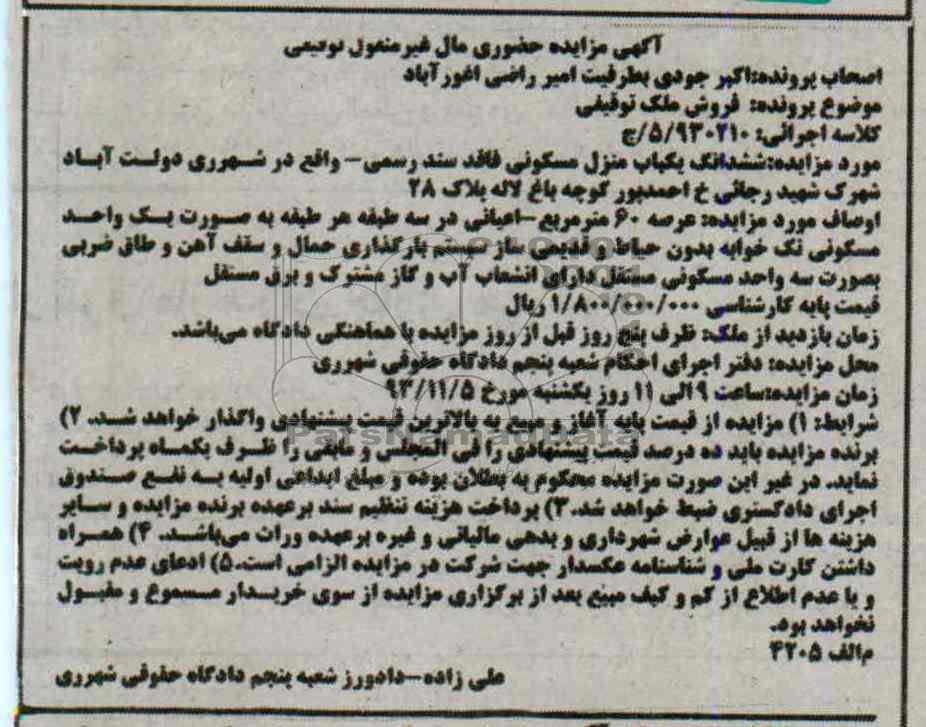 آگهی مزایده حضوری مال غیرمنقول توقیفی
اصحاب پرونده:اکبر جودی بطرفیت امیر راضی اغورآباد
موضوع پرونده: فروش ملک توقیفی
کلاسه اجرائی: ۵/۹۳۰۲۱۰/ج
مورد مزایده:ششدانگ یکباب منزل مسکونی فاقد سند رسمی- واقع در شهرری دولت آباد
شهرک شهید رجائی خ احمدپور کوچه باغ لاله پلاک ۲۸
اوصاف مورد مزایده: عرصه ۶۰ مترمربع-اعیانی در سه طبقه هر طبقه به صورت یک واحد
مسکونی تک خوابه بدون حیاط و قدیمی ساز سیستم بارگذاری حمال و سقف آهن و طاق ضربی
بصورت سه واحد مسکونی مستقل دارای انشعاب آب و گاز مشترک و برق مستقل
قیمت پایه کارشناسی ۱/۸۰۰/۰۰۰/۰۰۰ ریال
زمان بازدید از ملک: ظرف پنج روز قبل از روز مزایده با هماهنگی دادگاه می‌باشد.
محل مزایده: دفتر اجرای احکام شعبه پنجم دادگاه حقوقی شهرری
زمان مزایده:ساعت ۹ الی ۱۱ روز یکشنبه مورخ ۹۳/۱۱/۵
شرایط: ۱) مزایده از قیمت پایه آغاز و مبیع به بالاترین قیمت پیشنهادی واگذار خواهد شد. ۲)
برنده مزایده باید ده درصد قیمت پیشنهادی را فی المجلس و مابقی را ظرف یکماه پرداخت
نماید. در غیر این صورت مزایده محکوم به بطلان بوده و مبلغ ابداعی اولیه به نفع صندوق
اجرای دادگستری ضبط خواهد شد.۳) پرداخت هزینه تنظیم سند برعهده برنده مزایده و سایر
هزینه ها از قبیل عوارض شهرداری و بدهی مالیاتی و غیره برعهده وراث می‌باشد. ۴) همراه
داشتن کارت ملی و شناسنامه عکسدار جهت شرکت در مزایده الزامی است.۵) ادعای عدم رویت
و یا عدم اطلاع از کم و کیف مبیع بعد از برگزاری مزایده از سوی خریدار مسموع و مقبول
نخواهد بود.
م‌الف ۴۲۰۵
علی زاده-دادورز شعبه پنجم دادگاه حقوقی شهرری
ParsNamadData